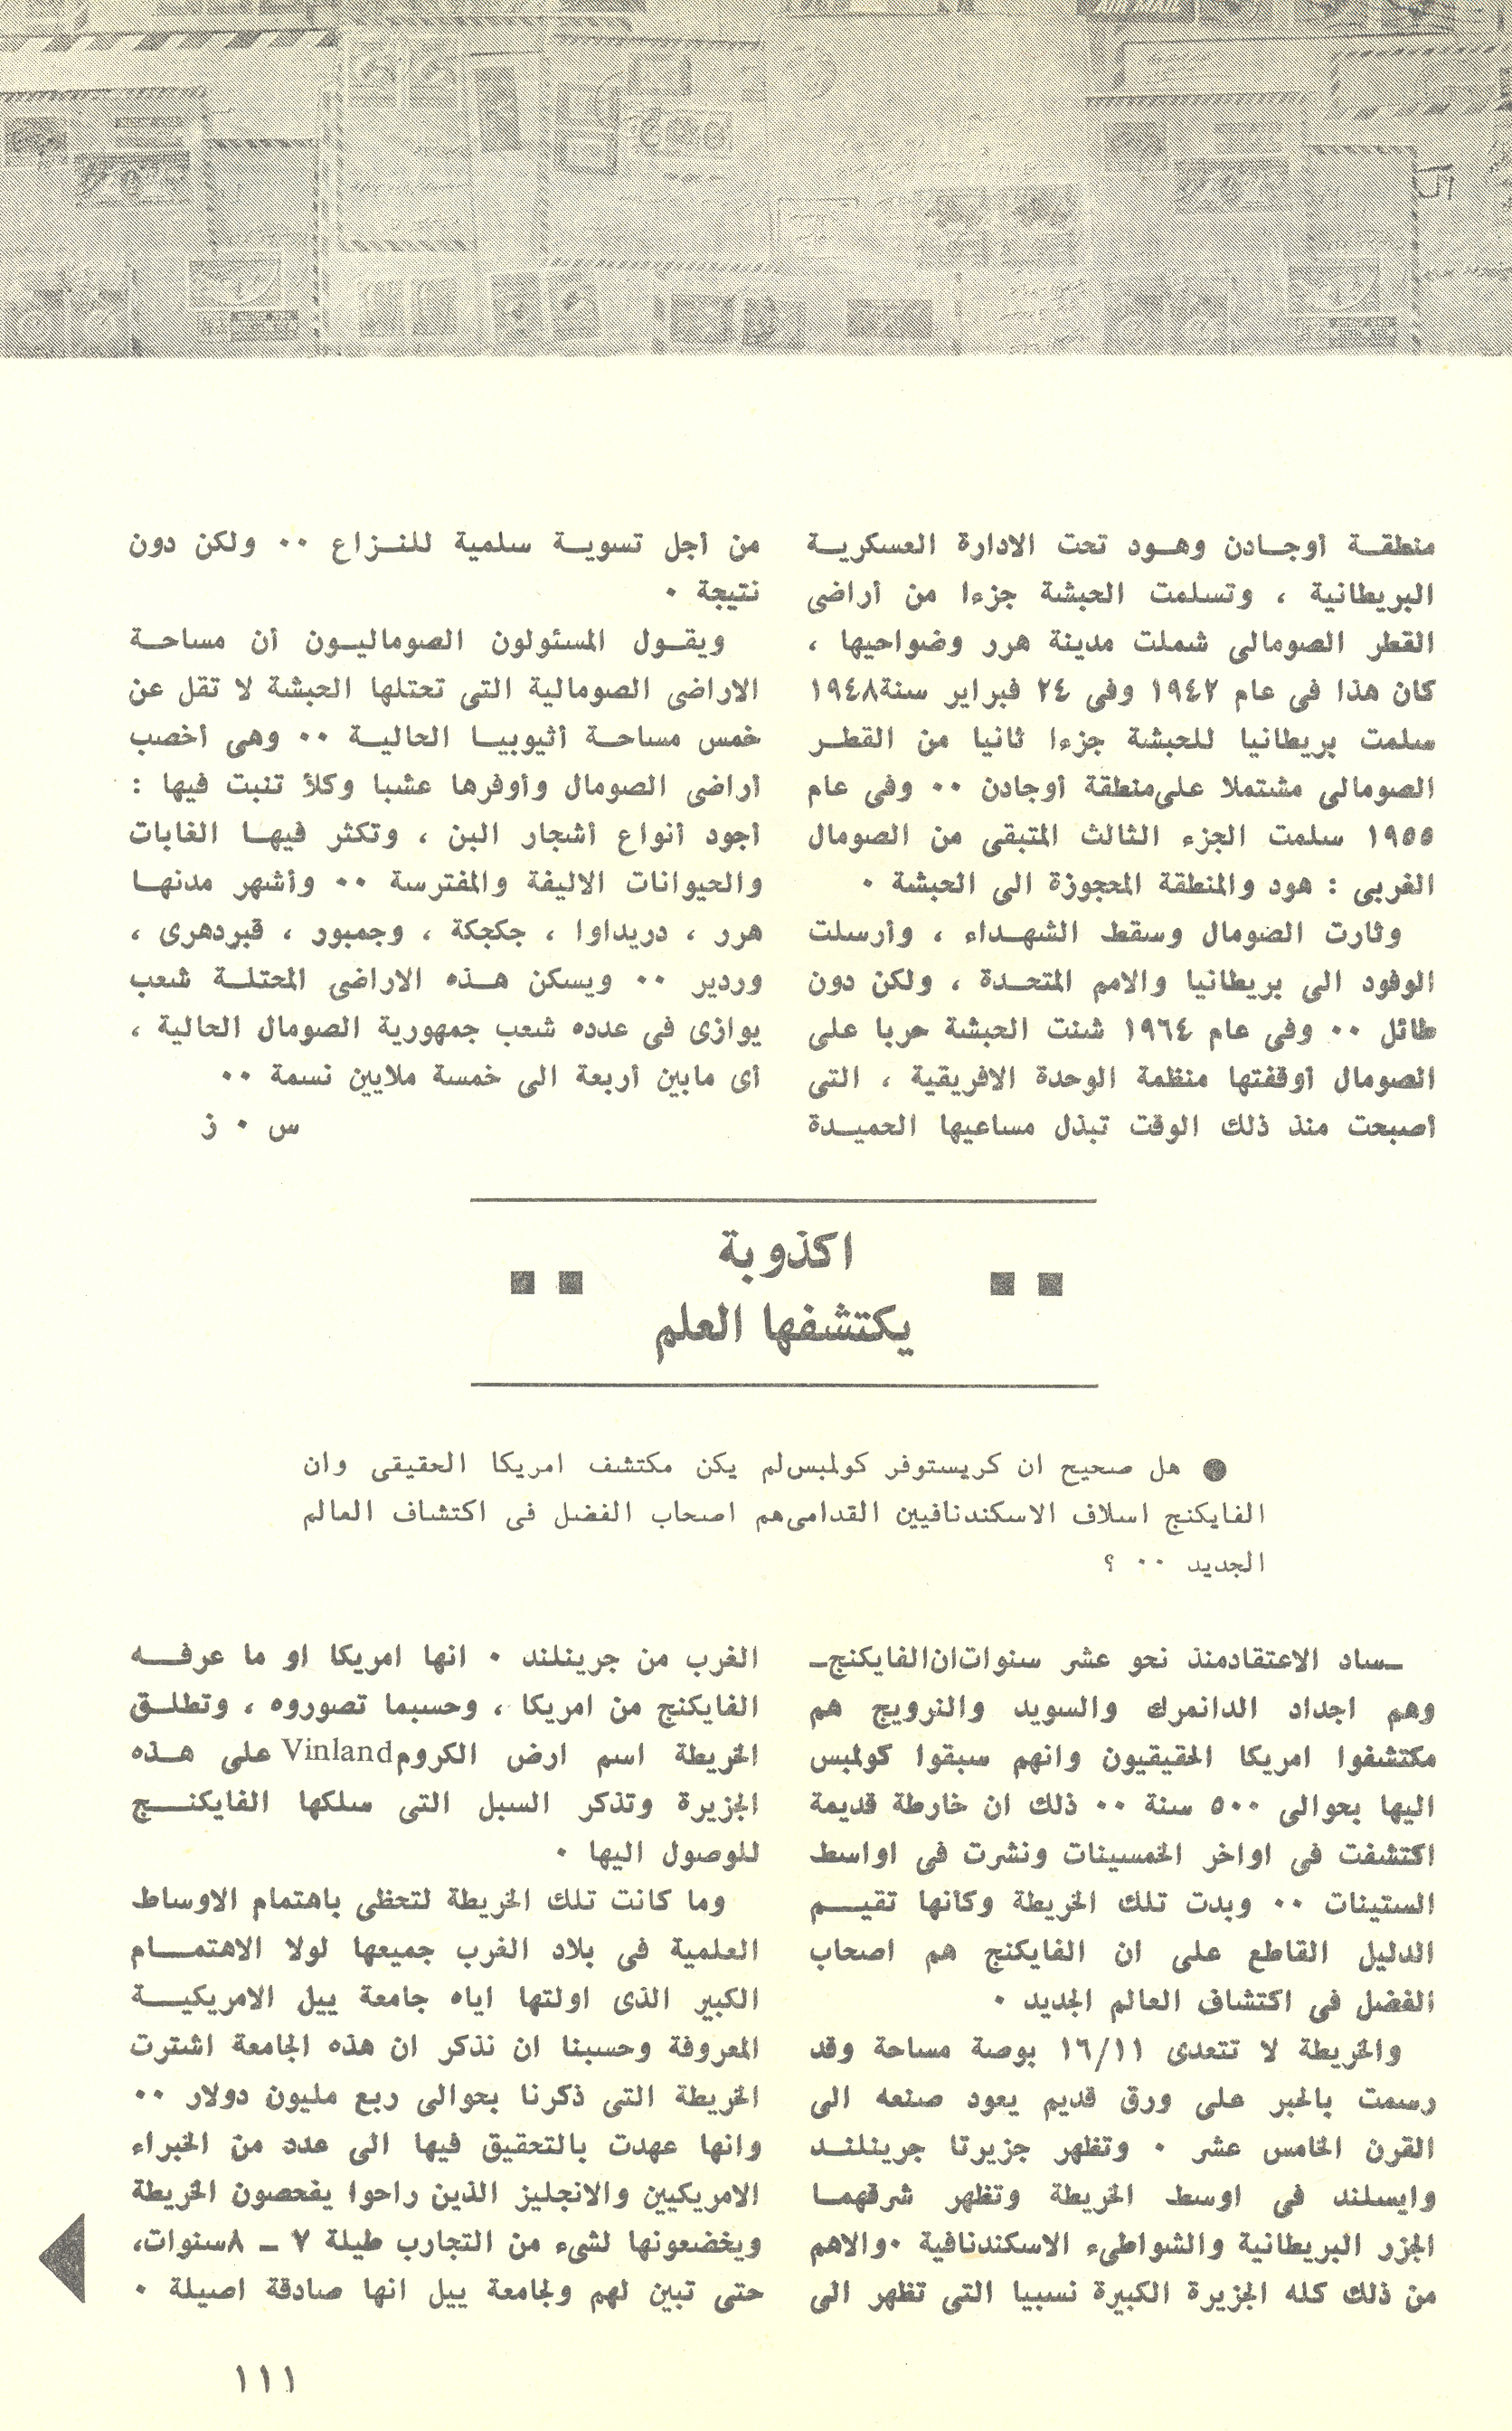 AIR MAIL
منطقــة أوجــادن وهــود تحت الادارة العسكريــة
البريطانية ، وتسلمت الحبشة جزءا من أراضى
القطر الصومالى شملت مدينة هرر وضواحيها ،
كان هذا فى عام ١٩٤٢ وفى ٢٤ فبراير سنة١٩٤٨
سلمت بريطانيا للحبشة جزءا ثانيا من القطــر
الصومالى مشتملا على منطقة أوجادن ٠٠ وفى عام
١٩٥٥ سلمت الجزء الثالث المتبقى من الصومال
الغربى : هود والمنطقة المحجوزة الى الحبشة ٠
وثارت الصومال وسقط الشهــداء ، وأرسلت
الوفود الى بريطانيا والامم المتحــدة ، ولكن دون
طائل ٠٠ وفى عام ١٩٦٤ شنت الحبشة حربا على
الصومال أوقفتها منظمة الوحدة الافريقية ، التى
أصبحت منذ ذلك الوقت تبذل مساعيها الحميــدة
من أجل تسويــة سلمية للنــزاع ٠٠ ولكن دون
نتيجة ٠
ويقــول المسئولون الصوماليــون أن مساحــة
الاراضى الصومالية التى تحتلها الحبشة لا تقل عن
خمس مساحــة أثيوبيــا الحاليــة ٠٠ وهى أخصب
أراضى الصومال وأوفرها عشبا وكلأ تنبت فيها :
أجود أنواع أشجار البن ، وتكثر فيهــا الغابات
والحيوانات الاليفة والمفترسة ٠٠ وأشهر مدنهــا
هرر ، دريداوا ، جكجكة ، وجمبور ، قبردهرى ،
وردير ٠٠ ويسكن هــذه الاراضى المحتلــة شعب
يوازى فى عدده شعب جمهورية الصومال الحالية ،
أى مابين أربعة الى خمسة ملايين نسمة ٠٠
س ٠ ز
اكذوبة
يكتشفها العلم
● هل صحيح ان كريستوفر كولمبس لم يكن مكتشف امريكا الحقيقى وان
الفايكنج اسلاف الاسكندنافيين القدامى هم اصحاب الفضل فى اكتشاف العالم
الجديد ٠٠ ؟
ــساد الاعتقادمنذ نحو عشر سنوات ان الفايكنج ــ
وهم اجداد الدانمرك والسويد والنرويج هم
مكتشفوا امريكا الحقيقيون وانهم سبقوا كولمبس
اليها بحوالى ٥٠٠ سنة ٠٠ ذلك ان خارطة قديمة
اكتشفت فى اواخر الخمسينات ونشرت فى اواسط
الستينات ٠٠ وبدت تلك الخريطة وكانها تقيــم
الدليل القاطع على ان الفايكنج هم اصحاب
الفضل فى اكتشاف العالم الجديد ٠
والخريطة لا تتعدى ١٦/١١ بوصة مساحة وقد
رسمت بالحبر على ورق قديم يعود صنعه الى
القرن الخامس عشر ٠ وتظهر جزيرتا جرينلنــد
وايسلند فى اوسط الخريطة وتظهر شرقهمــا
الجزر البريطانية والشواطىء الاسكندنافية ٠والاهم
من ذلك كله الجزيرة الكبيرة نسبيا التى تظهر الى
الغرب من جرينلند ٠ انها امريكا او ما عرفــه
الفايكنج من امريكا ، وحسبما تصوروه ، وتطلــق
الخريطة اسم ارض الكروم Vinland على هــذه
الجزيرة وتذكر السبل التى سلكها الفايكنــج
للوصول اليها ٠
وما كانت تلك الخريطة لتحظى باهتمام الاوساط
العلمية فى بلاد الغرب جميعها لولا الاهتمــام
الكبير الذى اولتها اياه جامعة ييل الامريكيــة
المعروفة وحسبنا ان نذكر ان هذه الجامعة اشترت
الخريطة التى ذكرنا بحوالى ربع مليون دولار ٠٠
وانها عهدت بالتحقيق فيها الى عدد من الخبراء
الامريكيين والانجليز الذين راحوا يفحصون الخريطة
ويخضعونها لشىء من التجارب طيلة ٧ ــ ٨سنوات،
حتى تبين لهم ولجامعة ييل انها صادقة اصيلة ٠
١١١